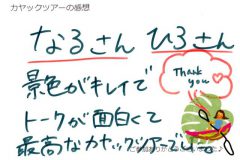 カヤックツアーの感想
なるさん ひろさん
景色がキレイで
Thank you
トークが面白くて
最高なカヤックツアーでした